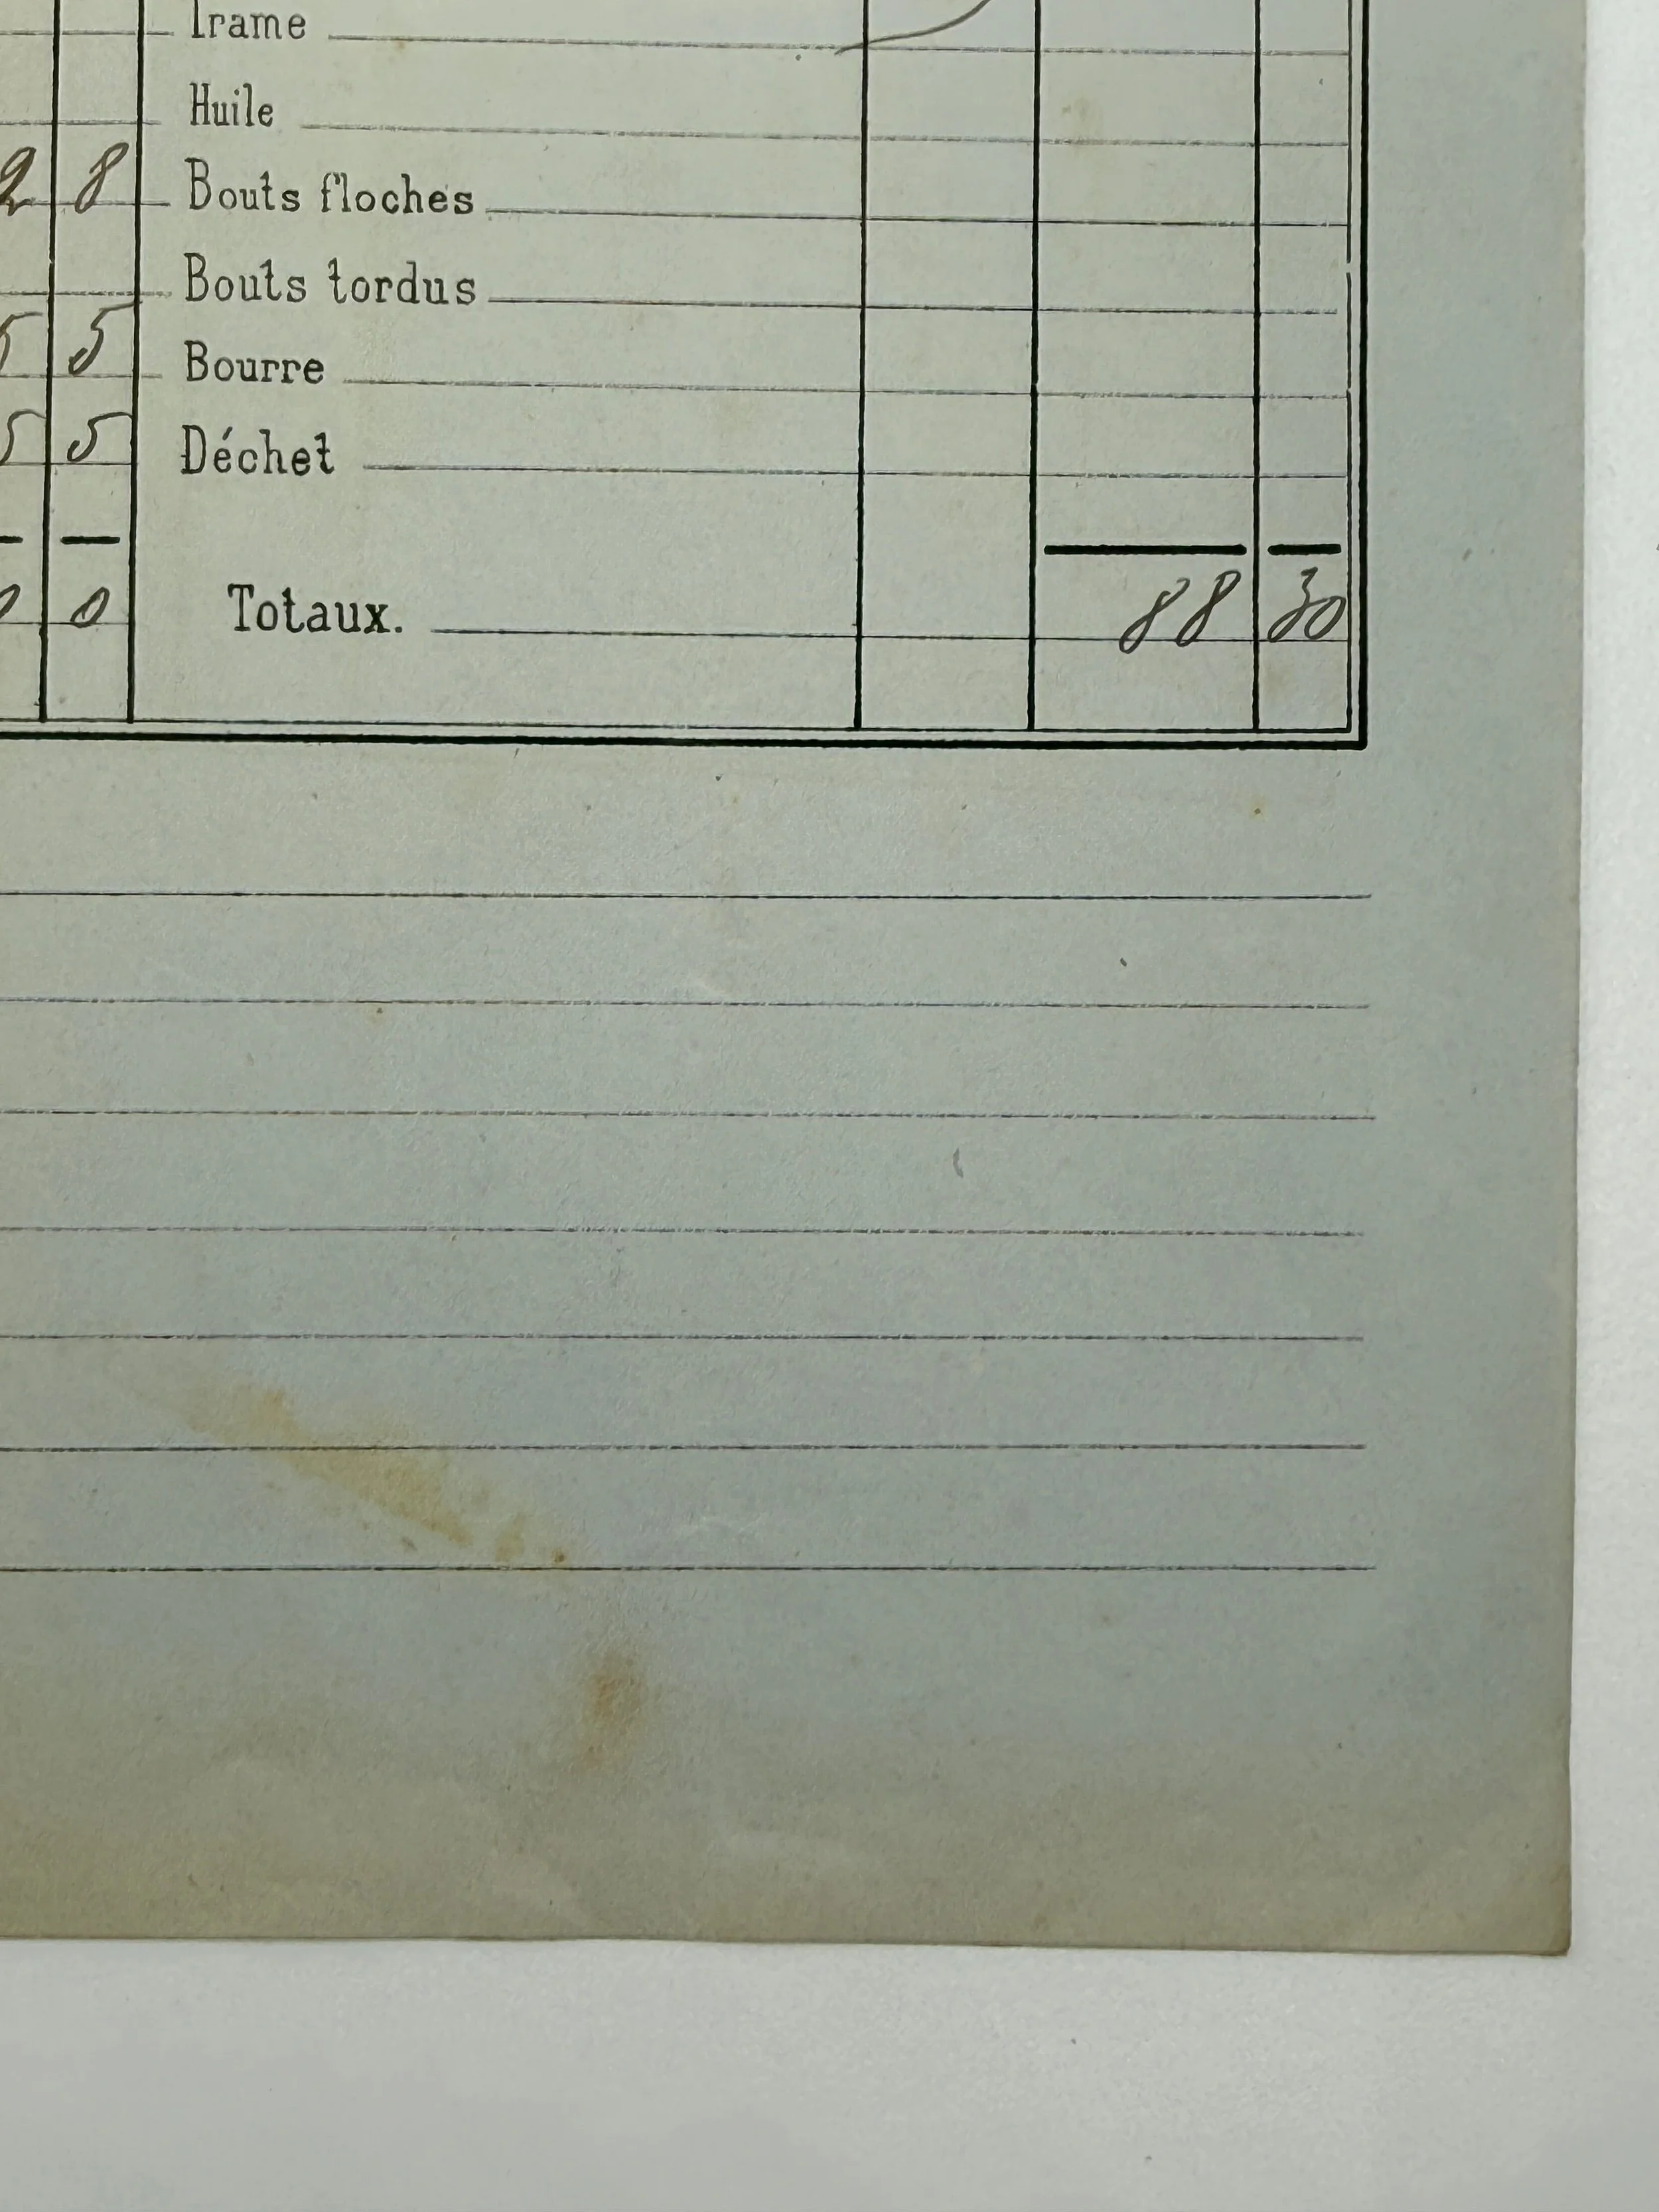 Trame
Huile
2 8 Bouts floches
Bouts tordus
5 5 Bourre
5 5 Déchet
0 0 Totaux. 88 30